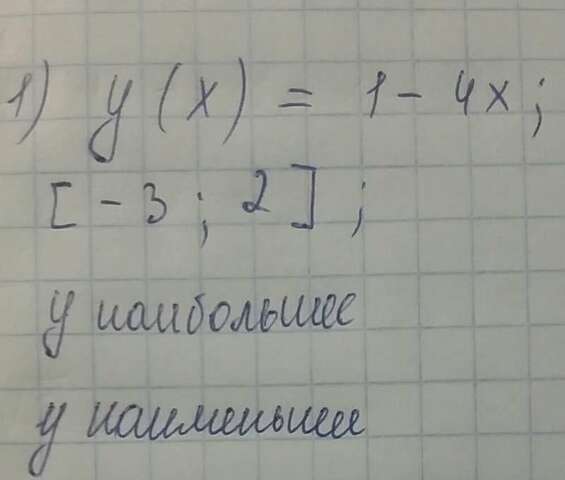 1) y(x) = 1 - 4x;
[-3; 2];
y наибольшее
y наименьшее